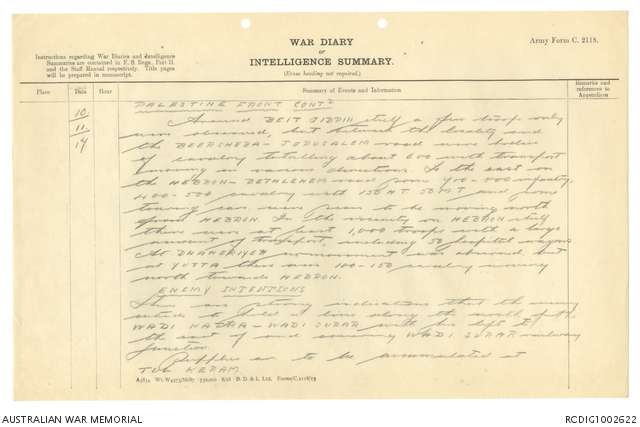 WAR DIARY
or
INTELLIGENCE SUMMARY.
(Erase heading not required.)
Army Form C. 2118.
Instructions regarding War Diaries and Intelligence
Summaries are contained in F. S. Regs., Part II.
and the Staff Manual respectively. Title pages
will be prepared in manuscript.
Place
Date
Hour
Summary of Events and Information
Remarks and
references to
Appendices
10
11
17
PALESTINE FRONT CONTD
Around BEIT JIBRIN itself a few troops only
were observed, but between the locality and
the BEERSHEBA - JERUSALEM road were bodies
of cavalry totalling about 600 with transport
moving in various directions. To the east on
the HEBRON - BETHLEHEM road from 400-500 infantry,
400-500 cavalry with 150 HT 50 MT and some
touring cars were seen to be moving north
from HEBRON. In the vicinity of HEBRON itself
there were at least 1,000 troops with a large
amount of transport, including 50 hospital wagons
At DHAHERIYEH no movement was observed but
at YUTTA there were 100-150 cavalry moving
north towards HEBRON.
ENEMY INTENTIONS
There are strong indications that the enemy
intends to hold a line along the north of the
WADI - WADI SURAR with his left to
the east of and covering WADI SURAR railway
junction.
Supplies are to be accumulated at
TUL KERAM.
D. D. & L. Ltd. Forms/C.2118/13
AUSTRALIAN WAR MEMORIAL
RCDIG1002622